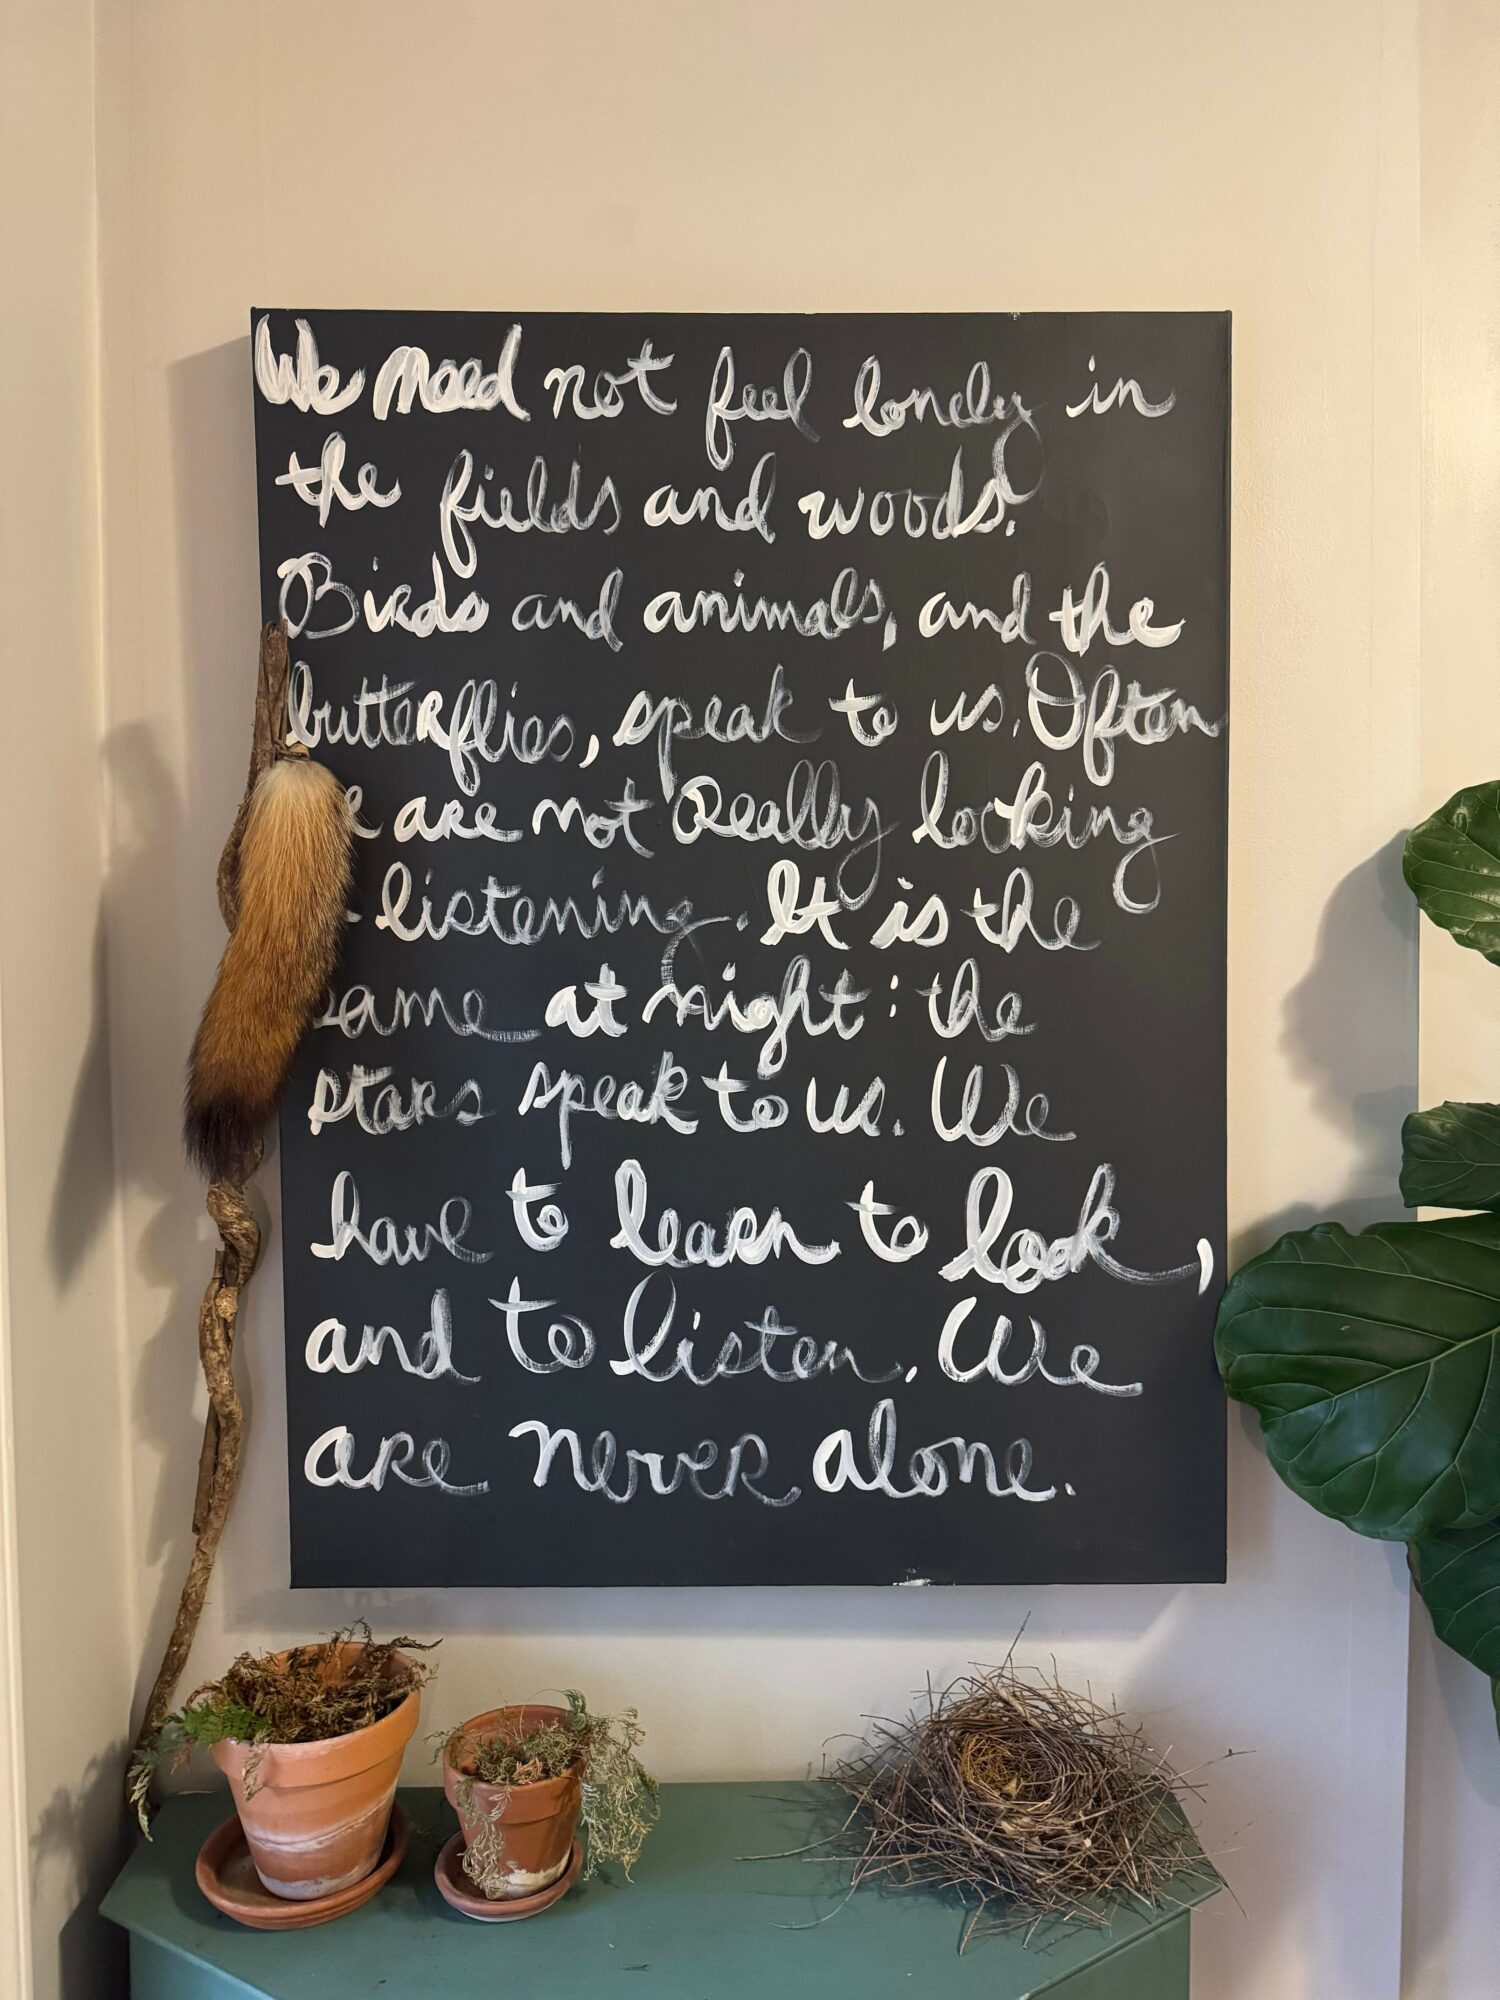 We need not feel lonely in
the fields and woods.
Birds and animals, and the
butterflies, speak to us. Often
are not really looking
listening. It is the
same at night: the
stars speak to us. We
have to learn to look,
and to listen. We
are never alone.